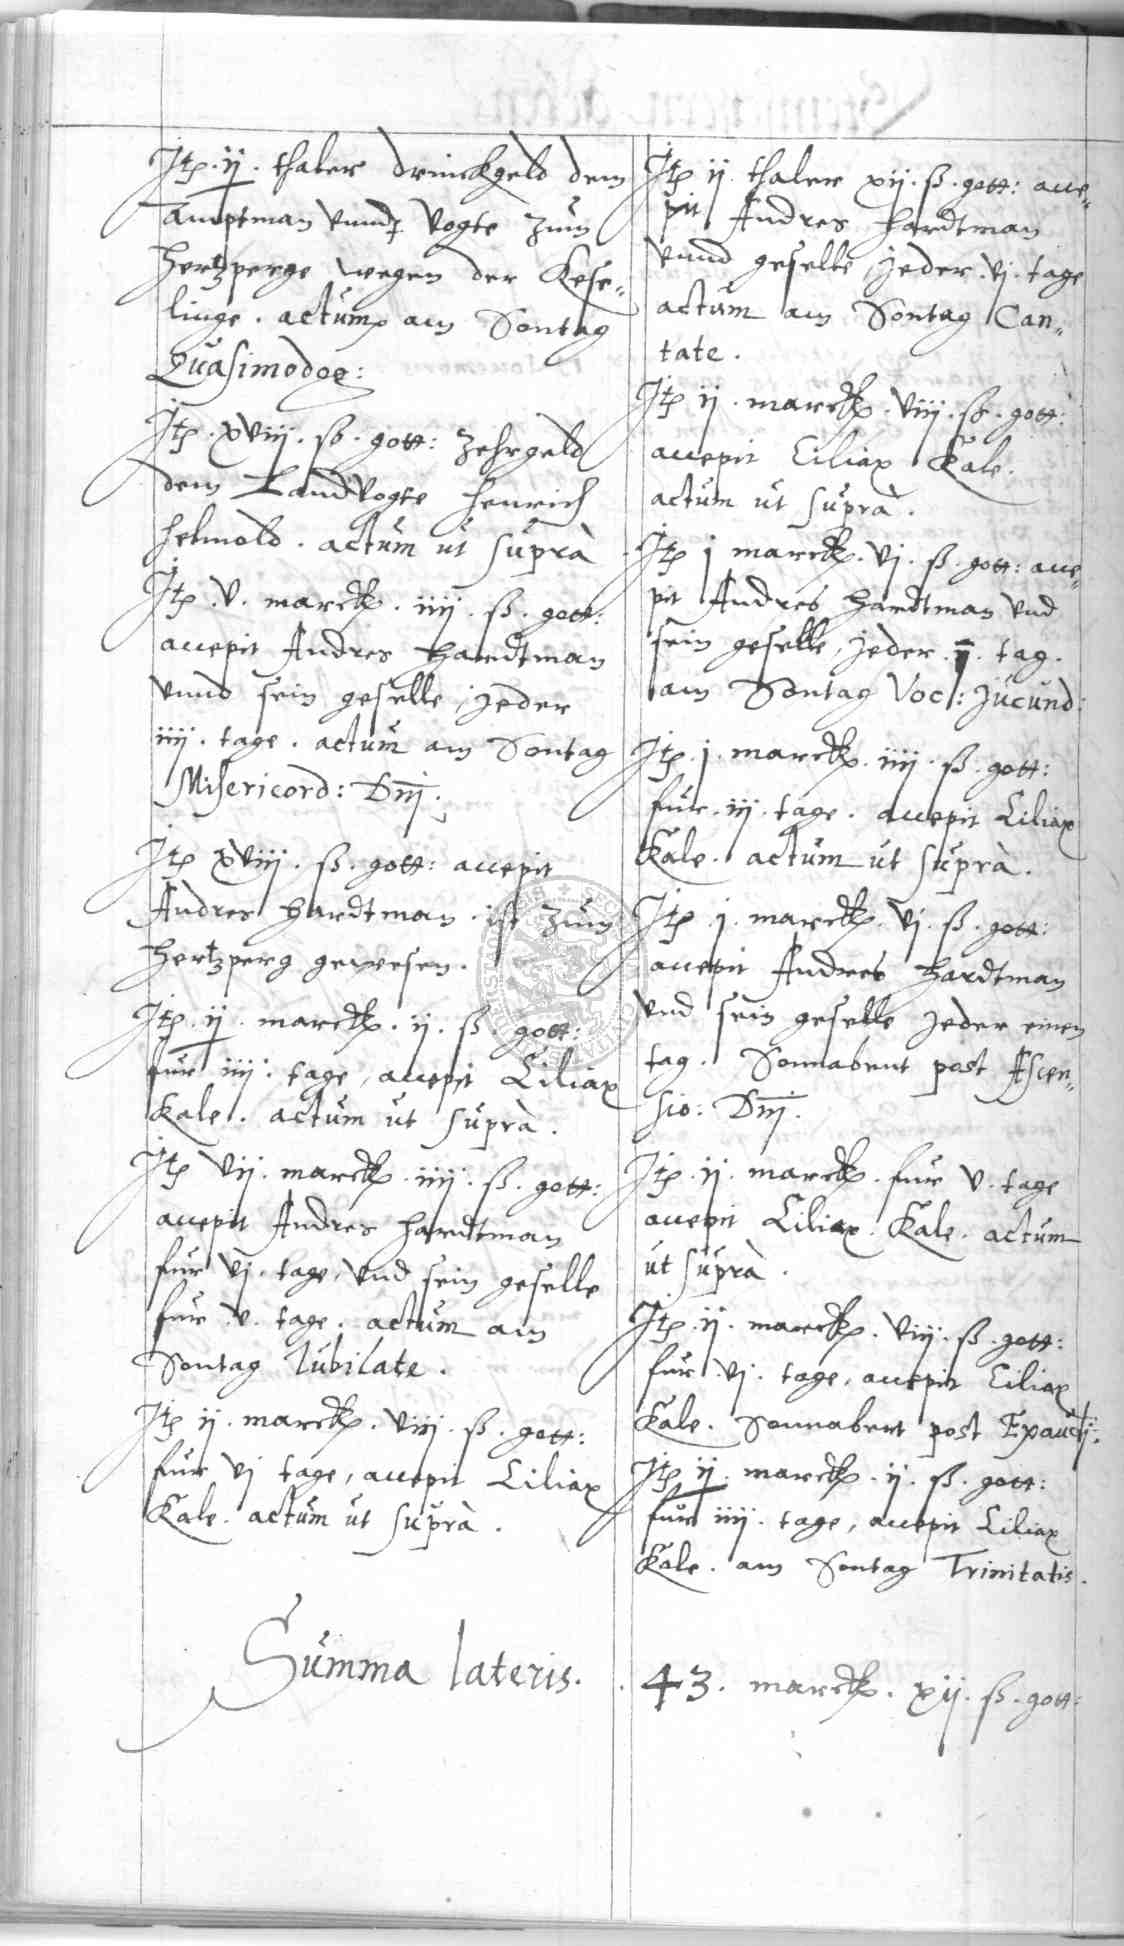 Itp. ij. thaler drinckgeld dem
Amptman unnd Vogte zum
Hertzperge wegen der Kese„
linge. actum am Sontag
Quasimodog:
Itp. xviij. ß. gott: zehrgeld
dem Landvogte Henrich
Helmold. actum ut suprà
Itp. v. marck. iiij. ß. gott:
accepit Andres Hardtman
unnd sein geselle, jeder
iiij. tage. actum am Sontag
Misericord: Dnj.
Itp xviij. ß. gott: accepit
Andres Hardtman ist zum
Hertzperg gewesen.
Itp. ij. marck. ij. ß. gott:
fur iiij. tage, accepit Ciliax
Kale. actum ut suprà.
Itp vij. marck. iiij. ß. gott:
accepit Andres Hardtman
fur vj. tage, und sein geselle
fur v. tage. actum am
Sontag Iubilate.
Itp ij. marck. viij. ß. gott:
fur vj tage, accepit Ciliax
Kale. actum ut suprà.
Itp ij. thaler xij. ß. gott: acce„
pit Andres Hardtman
unnd geselle, jeder. vj. tage
actum am Sontag Can„
tate.
Itp ij. marck. viij. ß. gott:
accepit Ciliax Kale.
actum ut suprà.
Itp j marck. vj. ß. gott: acce„
pit Andres Hardtman und
sein geselle, jeder. j. tag.
am Sontag Voc: Jucund:
Itp. j. marck. iiij. ß. gott:
fur. iij. tage. accepit Ciliax
Kale. actum ut suprà.
Itp. j. marck. vj. ß. gott:
accepit Andres Hardtman
und sein geselle jeder einen
tag. Sonnabent post Ascen„
sio: Dnj.
Itp. ij. marck. fur v. tage
accepit Ciliax Kale. actum
ut suprà.
Itp. ij. marck. viij. ß. gott:
fur. vj. tage, accepit Ciliax
Kale. Sonnabent post Exaudj:
Itp ij. marck. ij. ß. gott:
fur iiij. tage, accepit Ciliax
Kale. am Sontag Trinitatis.
Summa lateris. 43. marck. xij. ß. gott: